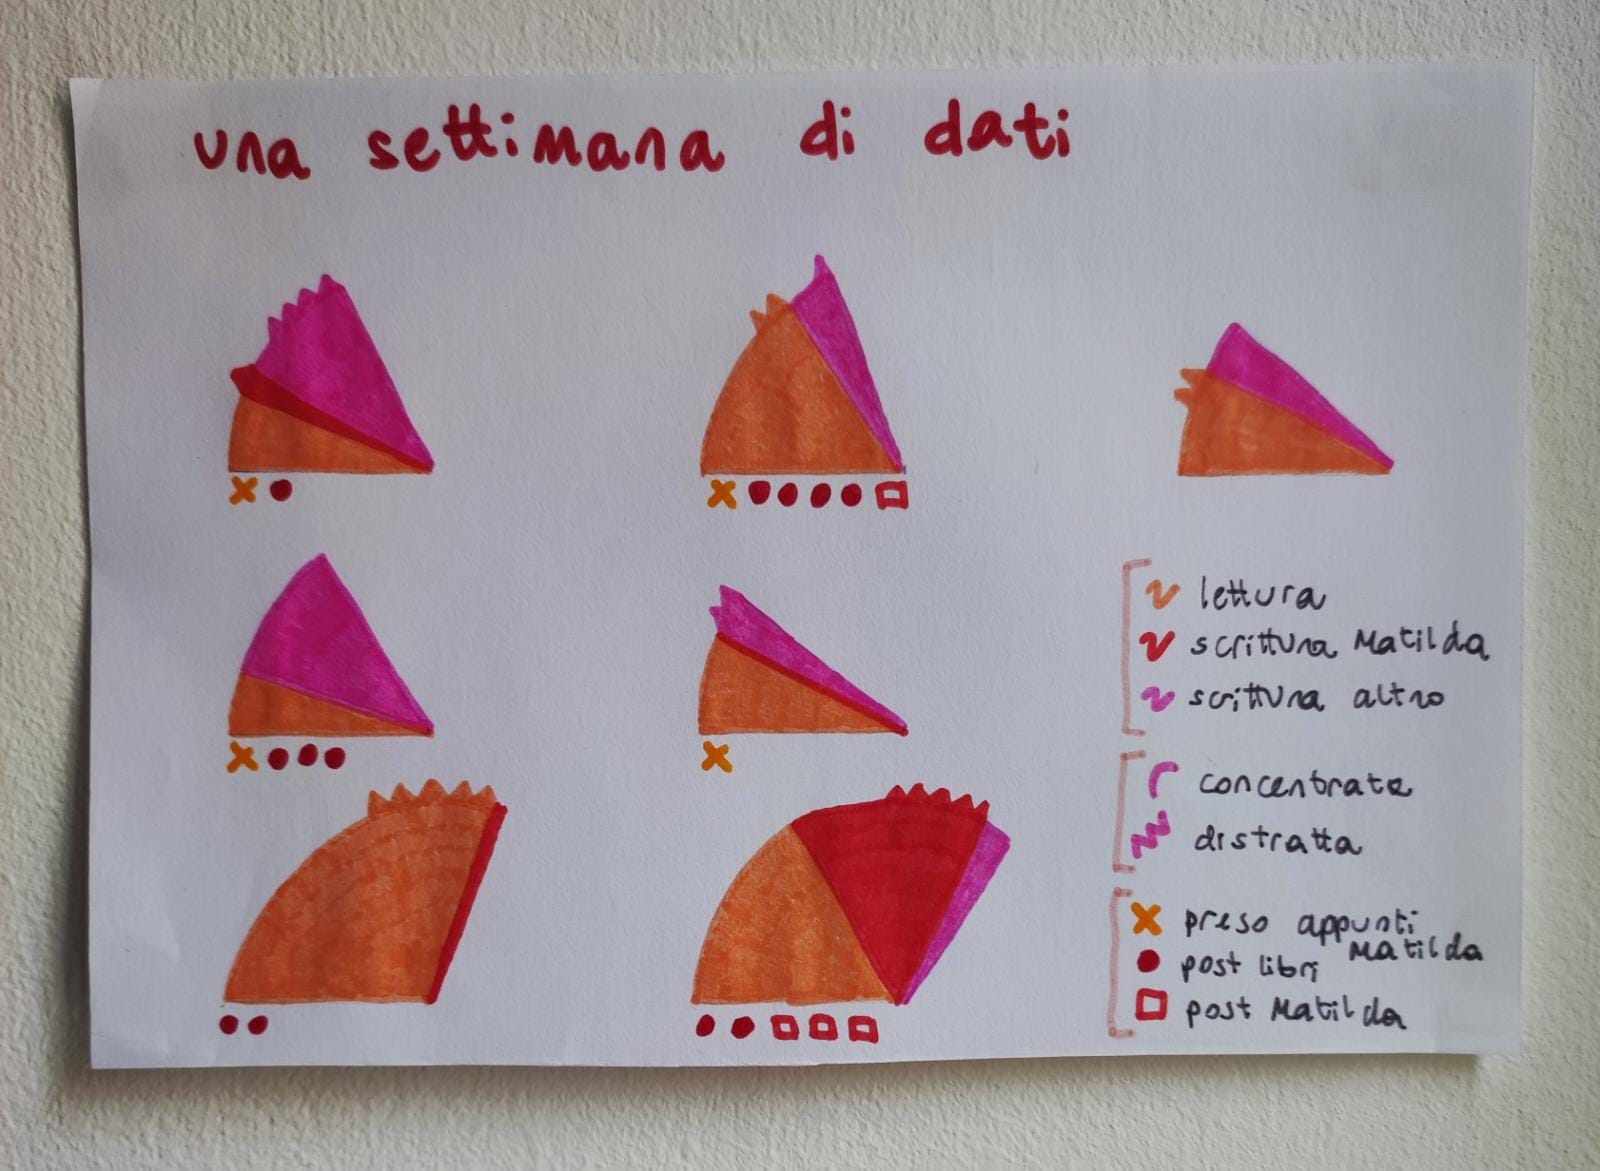 una settimana di dati
lettura
scrittura Matilda
scrittura altro
concentrata
distratta
preso appunti
Matilda
post libri
post Matilda